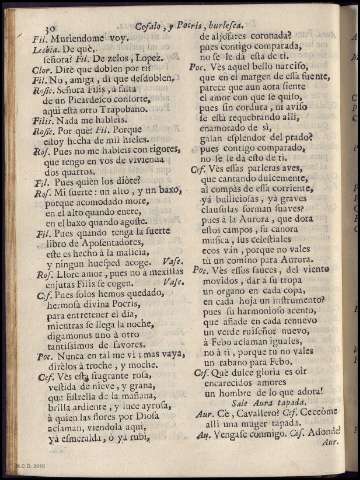 30 Cefalo, y Pocris, burlesca.
Fil. Muriendome voy.
Lesbia. De què,
señora? Fil. De zelos, Lopez.
Clor. Dirè que doblen por ti?
Fil. No, amiga, di que desdoblen.
Rosic. Señora Filis, à falta
de un Picardeico conforte,
aqui està otro Trapobano.
Filis. Nada me hableis.
Rosic. Por què? Fil. Porque
estoy hecha de mil hieles.
Ros. Pues no me hableis con rigores,
que tengo en vos de vivienda
dos quartos.
Fil. Pues quien los diòte?
Ros. Mi suerte: un alto, y un baxo,
porque acomodado more,
en el alto quando enere,
en el baxo quando agoste.
Fil. Pues quando tenga la suerte
libro de Aposentadores,
este es hecho à la malicia,
y ningun huesped acoge. Vase.
Ros. Llore amor, pues no a mexillas
enjutas Filis se cogen. Vase.
Cef. Pues solos hemos quedado,
hermosa divina Pocris,
para entretener el dia,
mientras se llega la noche,
digamonos uno à otro
tantissimos de favores.
Poc. Nunca en tal me vi: mas vaya,
dirèlos à troche, y moche.
Cef. Vès essa fragrante rosa,
vestida de nieve, y grana,
que Estrella de la mañana,
brilla ardiente, y luce ayrosa,
à quien las flores por Diosa
aclaman, viendola aqui,
yà esmeralda, ò yà rubí,
de aljofares coronada?
pues contigo comparada,
no se le dà esta de ti.
Poc. Vès aquel bello narciso,
que en el margen de essa fuente,
parece que aun aora siente
el amor con que se quiso,
pues sin cordura, ni aviso
se està requebrando alli,
enamorado de sì,
galan esplendor del prado?
pues contigo comparado,
no se le dà esto de ti.
Cef. Vès essas parleras aves,
que cantando dulcemente,
al compàs de essa corriente,
yà bulliciosas, yà graves
clausulas forman suaves?
pues à la Aurora, que dora
estos campos, su canora
musica, sus celestiales
ecos vàn, porque no vales
tù un comino para Aurora.
Poc. Vès essos sauces, del viento
movidos, dar à su tropa
un organo en cada copa,
en cada hoja un instrumento?
pues su harmonioso acento,
que añade en cada renuevo
un verde ruiseñor nuevo,
à Febo aclaman iguales,
no à ti, porque tu no vales
un rabano para Febo.
Cef. Què dulce gloria es oìr
encarecidos amores
un hombre de lo que adora!
Sale Aura tapada.
Aur. Cè, Cavallero? Cef. Ceceòme
alli una muger tapada.
Au. Vengase conmigo. Cef. Adonde?
Aur.